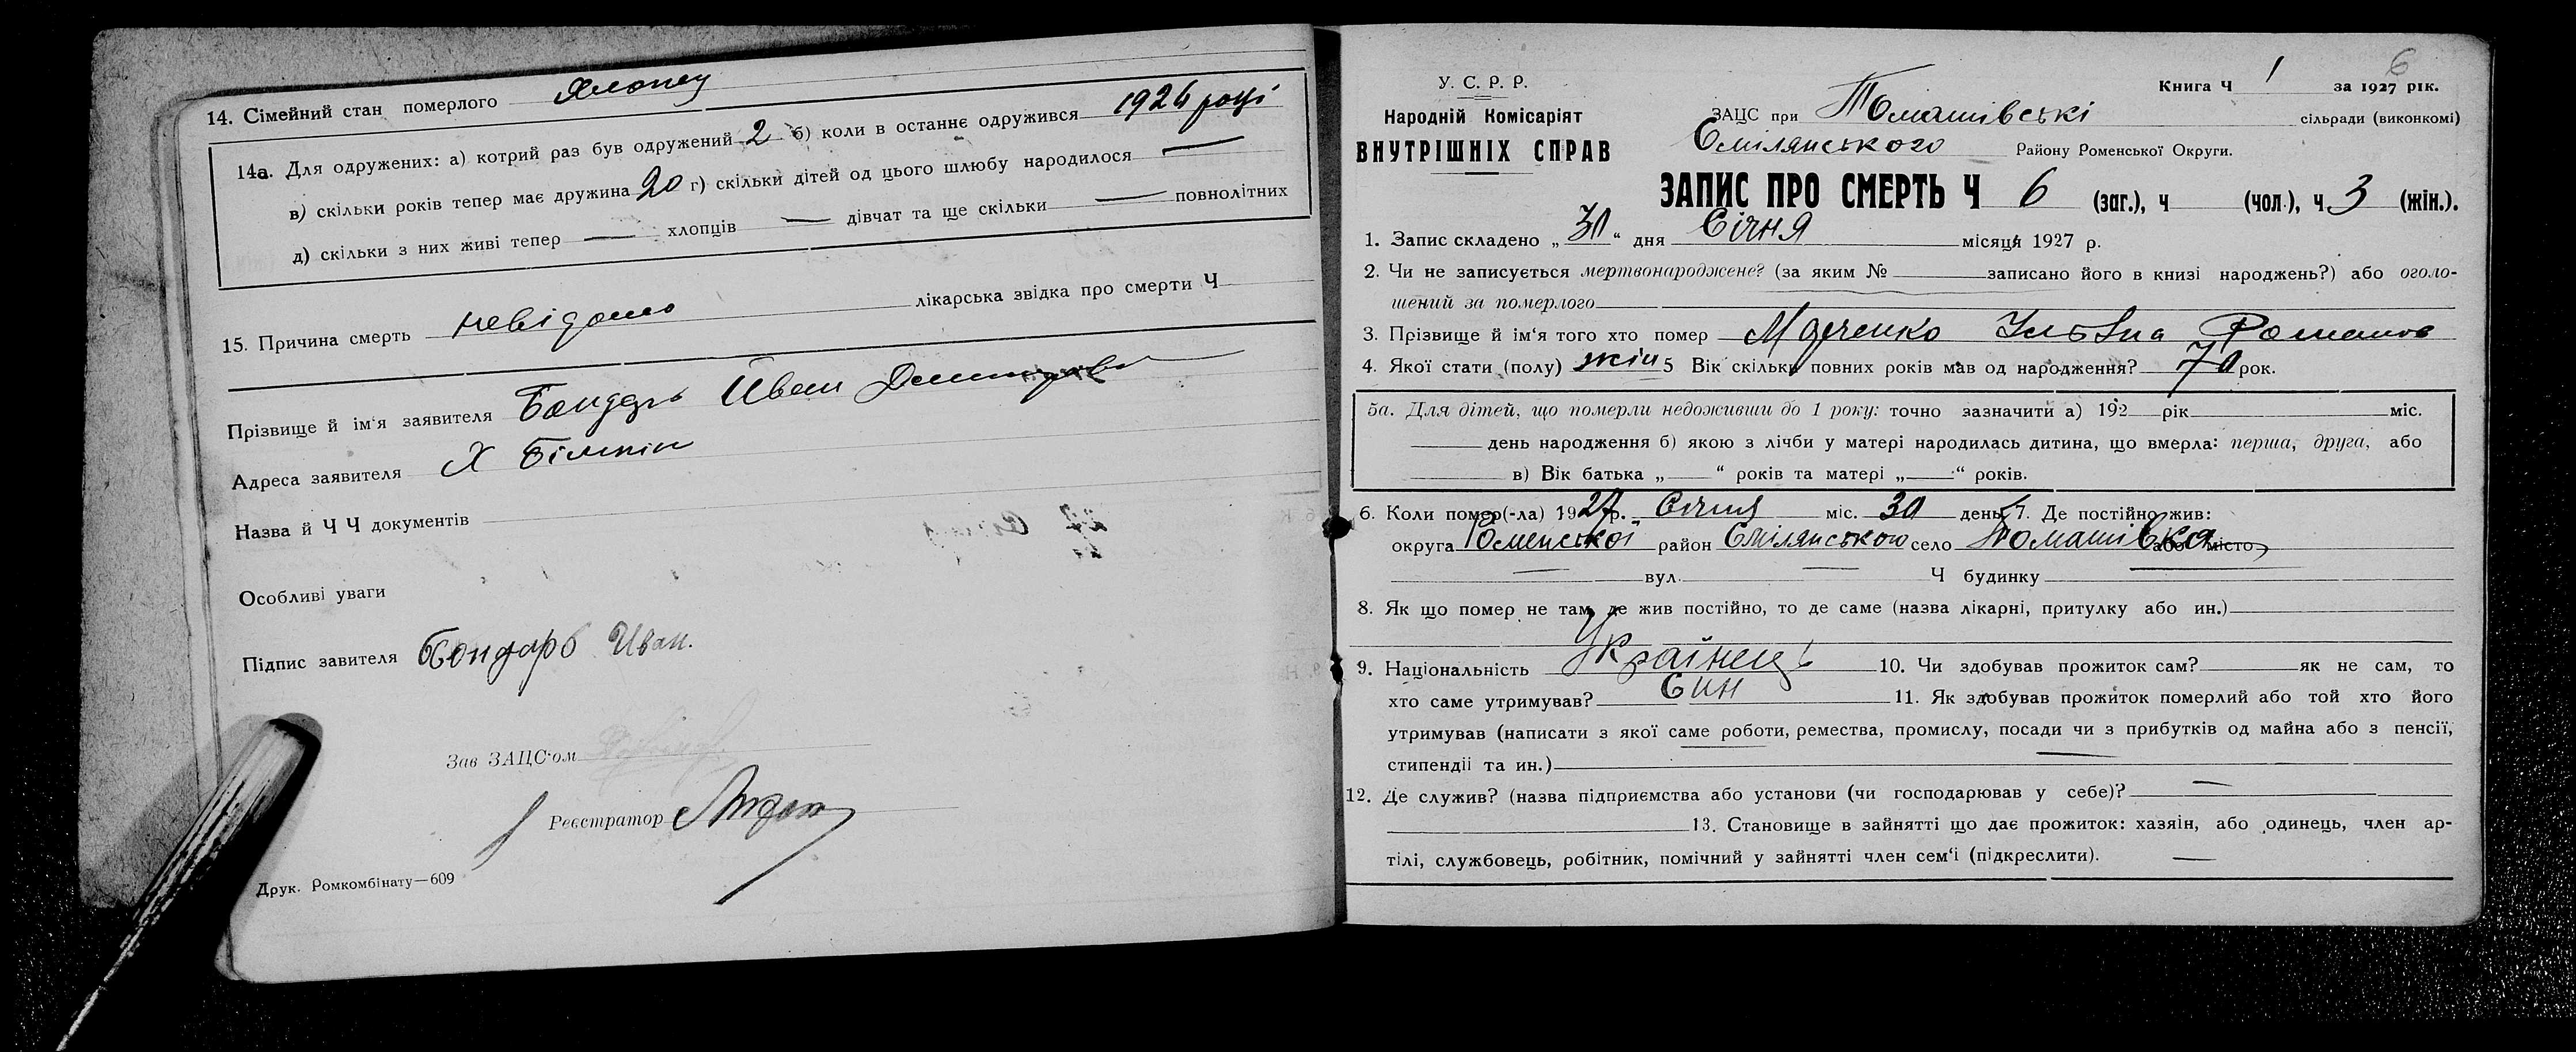 14. Сімейний стан померлого
14а. Для одружених: а) котрий раз був одружений 2 б) коли в останнє одружився 1926 році
в) скільки років тепер має дружина 20 г) скільки дітей од цього шлюбу народилося —
д) скільки з них живі тепер — хлопців — дівчат та ще скільки — повнолітних
15. Причина смерть невідомо лікарська звідка про смерти Ч
Прізвище й ім'я заявителя Бондарь Иван
Адреса заявителя Х
Назва й Ч Ч документів
Особливі уваги
Підпис завителя Бондарь Иван.
Зав ЗАЦС'ом
Реєстратор
Друк. Ромкомбінату—609
6
У. С. Р. Р.
Народній Комісаріят
ВНУТРІШНІХ СПРАВ
Книга Ч 1 за 1927 рік.
ЗАЦС при Томашівські сільради (виконкомі)
Смілянського Району Роменської Округи.
ЗАПИС ПРО СМЕРТЬ Ч 6 (заг.), ч (чол.), ч 3 (жін.).
1. Запис складено „ 30 " дня Січня місяця 1927 р.
2. Чи не записується мертвонароджене? (за яким № записано його в книзі народжень?) або оголо-
шений за померлого
3. Прізвище й ім'я того хто помер
4. Якої стати (полу) жін 5 Вік скільки повних років мав од народження? 70 рок.
5а. Для дітей, що померли недоживши до 1 року: точно зазначити а) 192 рік міс.
день народження б) якою з лічби у матері народилась дитина, що вмерла: перша, друга, або
в) Вік батька „ — " років та матері „ — " років.
6. Коли помер(-ла) 1927 р. Січня міс. 30 день 7. Де постійно жив:
округа Роменської район Смілянського село Томашівка або місто
— вул. — Ч будинку —
8. Як що помер не там де жив постійно, то де саме (назва лікарні, притулку або ин.)
9. Національність Українець 10. Чи здобував прожиток сам? як не сам, то
хто саме утримував? Син 11. Як здобував прожиток померлий або той хто його
утримував (написати з якої саме роботи, ремества, промислу, посади чи з прибутків од майна або з пенсії,
стипендії та ин.) —
12. Де служив? (назва підприємства або установи (чи господарював у себе)? —
13. Становище в зайнятті що дає прожиток: хазяїн, або одинець, член ар-
тілі, службовець, робітник, помічний у зайнятті член сем'ї (підкреслити). —